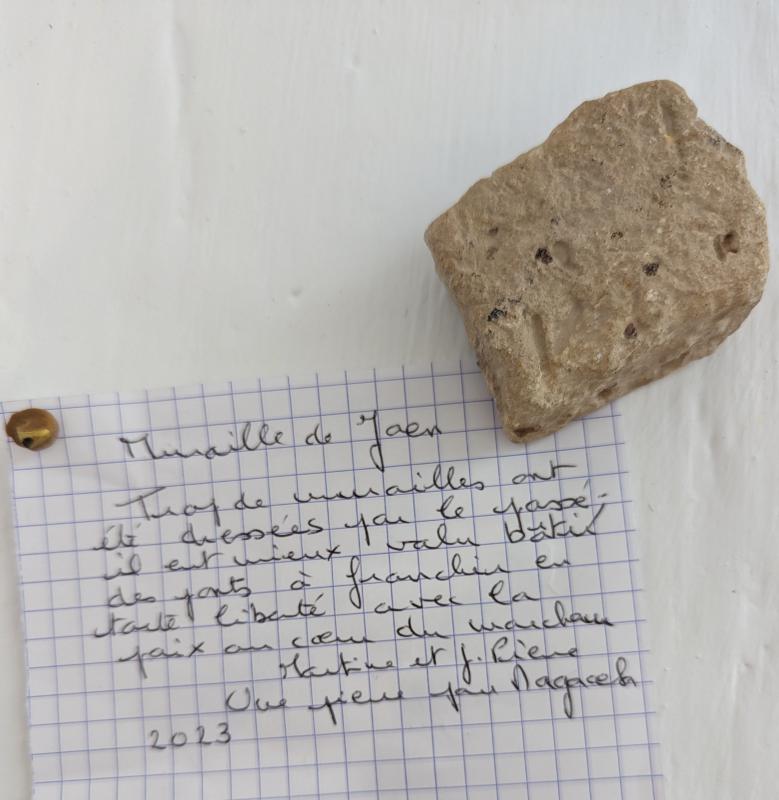 Muraille de Jaen
Trop de murailles ont
été dressées par le passé.
il eut mieux valu bâtir
des ponts à franchir en
toute liberté avec la
paix au cœur du marcheur
Martine et J. Pierre
Une pierre pour
2023